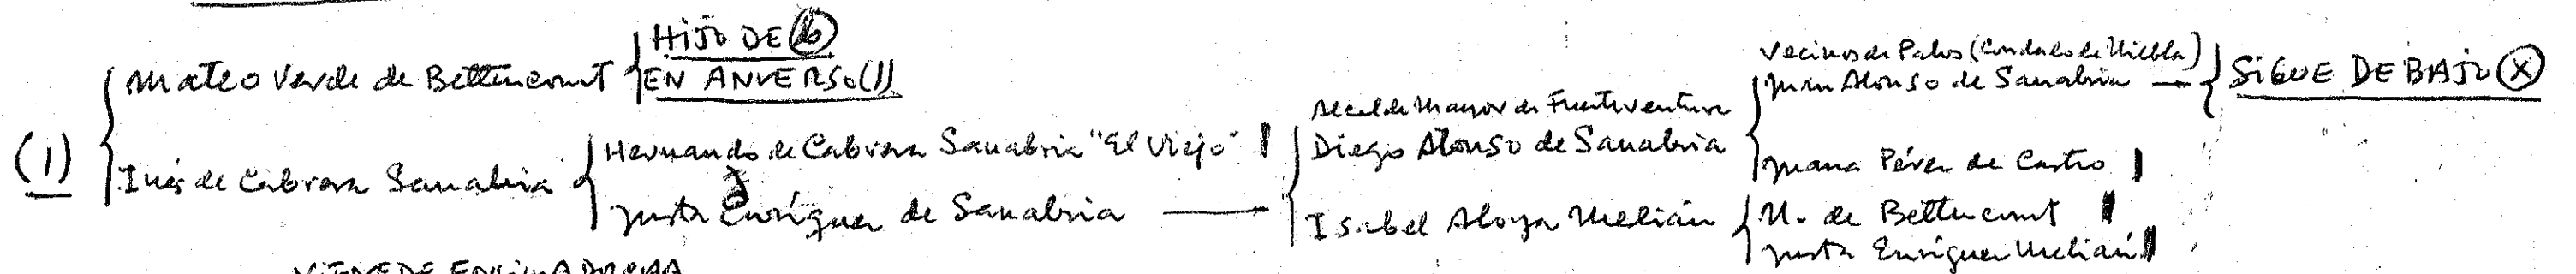 HIJO DE (b)
EN ANVERSO(1)
Mateo Verde de Bettencourt
(1)
Inés de Cabrera Sanabria
Hernando de Cabrera Sanabria "El Viejo"
Justa Enríquez de Sanabria
Alcalde Mayor de Fuerteventura
Diego Alonso de Sanabria
Isabel Aloya Melián
Vecinos de Palos (Condado de Niebla)
Juan Alonso de Sanabria
Juana Pérez de Castro
N. de Bettencourt
Justa Enríquez Melián
SIGUE DEBAJO (X)